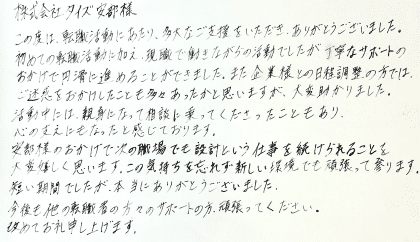 株式会社タイズ安部様
この度は、転職活動にあたり、多大なご支援をいただき、ありがとうございました。
初めての転職活動に加え、現職で働きながらの活動でしたが丁寧なサポートの
おかげで円滑に進めることができました。また企業様との日程調整の方では、
ご迷惑をおかけしたことも多々あったかと思いますが、大変助かりました。
活動中には、親身になって相談に乗ってくださったこともあり、
心の支えにもなったと感じております。
安部様のおかげで次の職場でも設計という仕事を続けられることを
大変嬉しく思います。この気持ちを忘れず新しい環境でも頑張って参ります。
短い期間でしたが、本当にありがとうございました。
今後も他の転職者の方々のサポートの方、頑張ってください。
改めてお礼申し上げます。